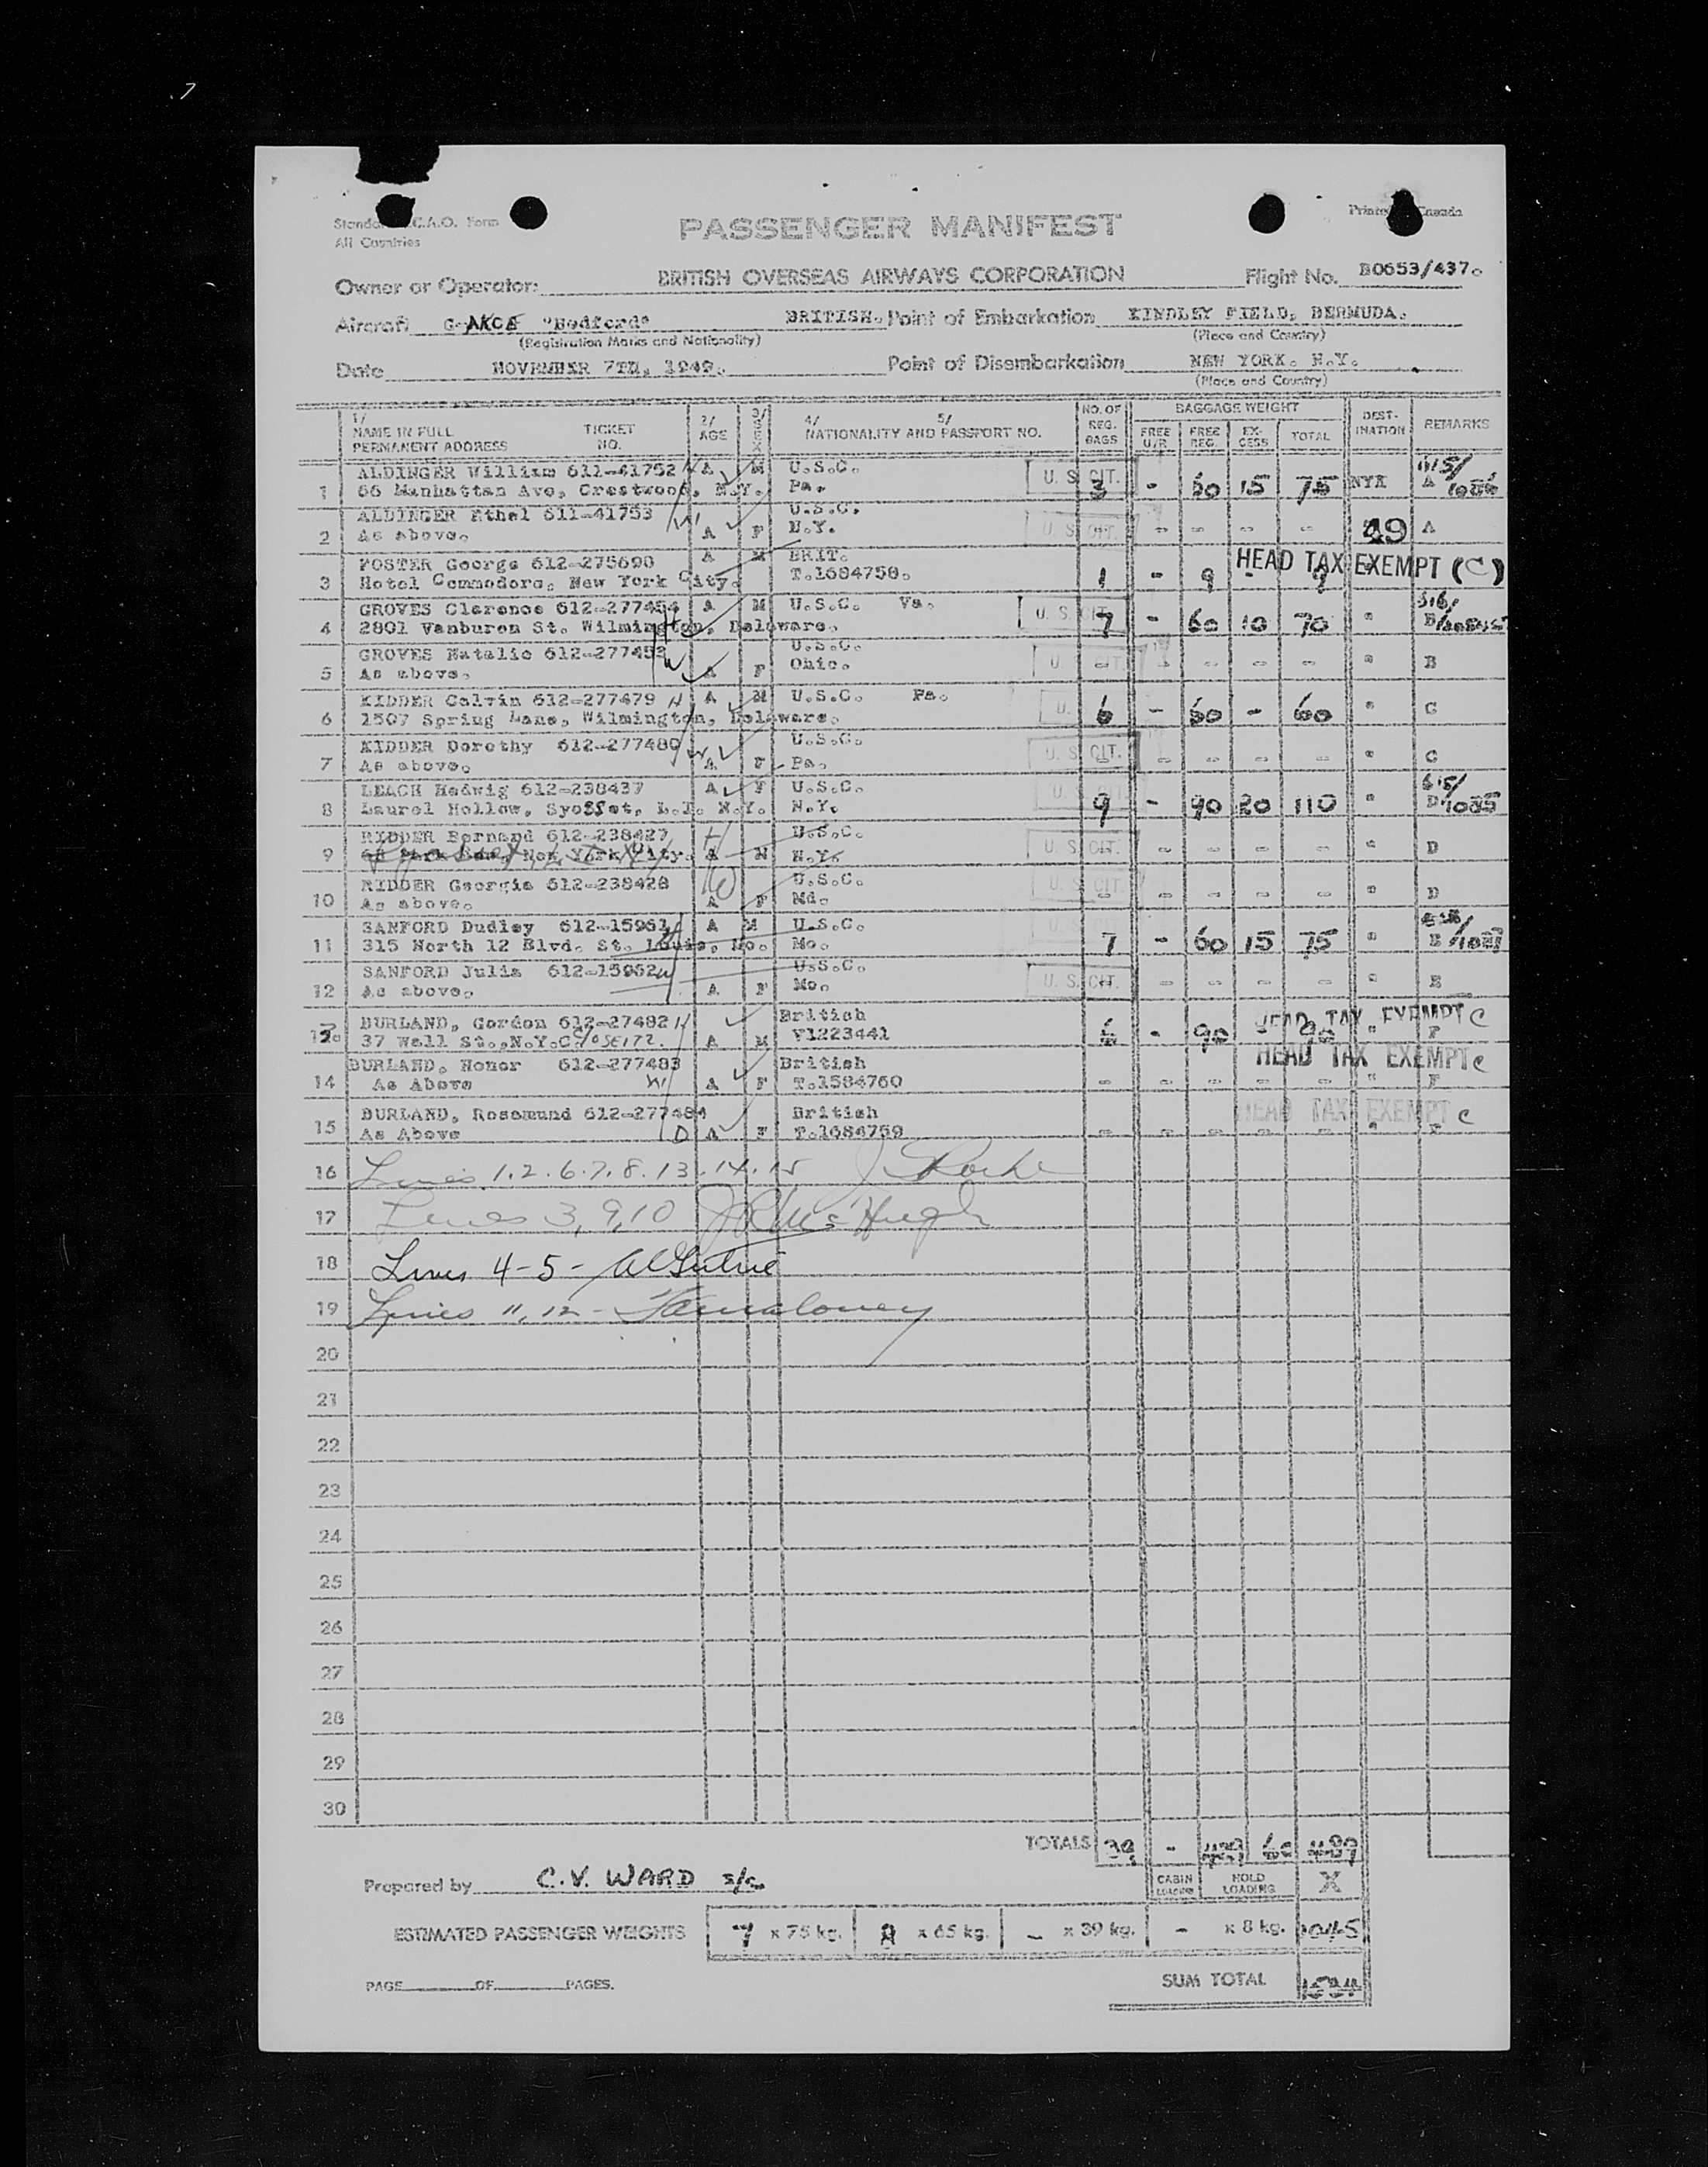 Standa C.A.O. Form
All Countries
PASSENGER MANIFEST
Printed Canada
Owner or Operator: BRITISH OVERSEAS AIRWAYS CORPORATION Flight No. B0653/437.
Aircraft G-AKCE "Bedford" BRITISH. Point of Embarkation KINDLEY FIELD, BERMUDA.
(Registration Marks and Nationality) (Place and Country)
Date NOVEMBER 7TH, 1949. Point of Disembarkation NEW YORK. N.Y.
(Place and Country)
1/ NAME IN FULL PERMANENT ADDRESS TICKET NO. 2/ AGE 3/ SEX 4/ 5/ NATIONALITY AND PASSPORT NO. NO. OF REG. BAGS BAGGAGE WEIGHT FREE U/R FREE REG. EX-CESS TOTAL DEST-INATION REMARKS
ALDINGER William 611-41752 H A M U.S.C. U. S. CIT.
1 66 Manhattan Ave, Crestwood, N.Y. Pa. 3 - 60 15 75 NYK A
ALDINGER Ethel 611-41753 W U.S.C. U. S. CIT.
2 As above. A F N.Y. - - - - - 49 A
FOSTER George 612-275690 A M BRIT. HEAD TAX EXEMPT (C)
3 Hotel Commodore, New York City. T.1684758. 1 - 9 - 9
GROVES Clarence 612-277454 A M U.S.C. Va. U. S. CIT.
4 2801 Vanburen St. Wilmington, Delaware. 7 - 60 10 70 " B
GROVES Natalie 612-277452 W U.S.C. U. S. CIT.
5 As above. A F Ohio. - - - - - " B
KIDDER Calvin 612-277479 H A M U.S.C. Pa. U.
6 1507 Spring Lane, Wilmington, Delaware. 6 - 60 - 60 " C
KIDDER Dorothy 612-277480 W U.S.C. U. S. CIT.
7 As above. A F Pa. - - - - - " C
LEACH Hedwig 612-238437 A F U.S.C. U. S. CIT.
8 Laurel Hollow, Syosset, L.I. N.Y. N.Y. 9 - 90 20 110 " D
RIDDER Bernard 612-238427 H U.S.C. U. S. CIT.
9 New York City. A M N.Y. - - - - - " D
RIDDER Georgia 612-238428 W U.S.C. U. S. CIT.
10 As above. A F Md. - - - - - " D
SANFORD Dudley 612-15961 H A M U.S.C. U. S.
11 315 North 12 Blvd. St. Louis, Mo. Mo. 7 - 60 15 75 " E
SANFORD Julia 612-15962 W U.S.C. U. S. CIT.
12 As above. A F Mo. - - - - - " E
BURLAND, Gordon 612-27482 H British HEAD TAX EXEMPT C
13 37 Wall St., N.Y.C. A M V1223441 6 - 90 - 90 " F
BURLAND, Honor 612-277483 British HEAD TAX EXEMPT C
14 As Above W A F T.1584760 - - - - - " F
BURLAND, Rosamund 612-277484 British HEAD TAX EXEMPT C
15 As Above D A F T.1684759 - - - - - " F
16 Lines 1.2.6.7.8.13.14.15 J Roche
17 Lines 3,9,10 McHugh
18 Lines 4-5-
19 Lines 11, 12 -
20
21
22
23
24
25
26
27
28
29
30
TOTALS 39 - 429 60 489
Prepared by C.V. WARD s/c CABIN LOADING HOLD LOADING X
ESTIMATED PASSENGER WEIGHTS 7 x 75 kg. 8 x 65 kg. - x 39 kg. - x 8 kg. 1045
PAGE OF PAGES. SUM TOTAL 1534